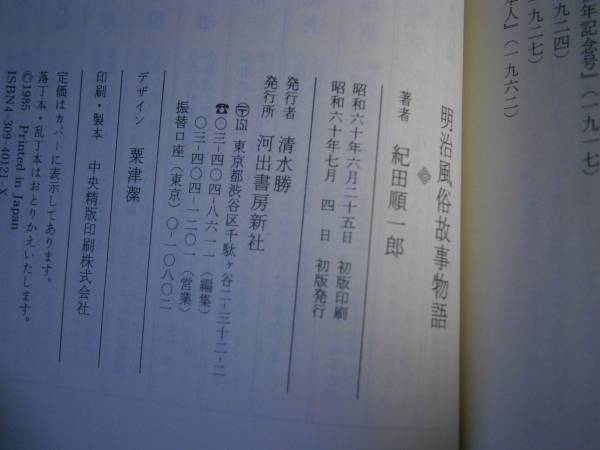 年記念号』（一九一七）
一九二四）
一九二七）
本人』（一九六二）
明治風俗故事物語
著者 紀田順一郎
昭和六十年六月二十五日 初版印刷
昭和六十年七月 四 日 初版発行
発行者 清水勝
発行所 河出書房新社
〒151 東京都渋谷区千駄ヶ谷二-三十二-二
☎〇三-四〇四-八六一一（編集）
〇三-四〇四-一二〇一（営業）
振替口座（東京）〇-一〇八〇二
デザイン 粟津潔
印刷・製本 中央精版印刷株式会社
定価はカバーに表示してあります。
落丁本・乱丁本はおとりかえいたします。
©1985 Printed in Japan
ISBN4-309-40121-X